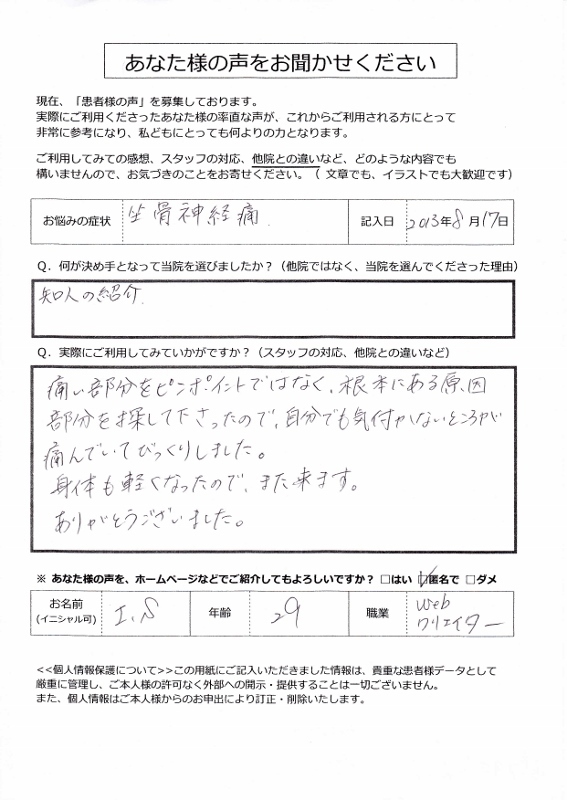 あなた様の声をお聞かせください
現在、「患者様の声」を募集しております。
実際にご利用くださったあなた様の率直な声が、これからご利用される方にとって
非常に参考になり、私どもにとっても何よりの力となります。
ご利用してみての感想、スタッフの対応、他院との違いなど、どのような内容でも
構いませんので、お気づきのことをお寄せください。（ 文章でも、イラストでも大歓迎です）
お悩みの症状 坐骨神経痛 記入日 2013年8月17日
Q．何が決め手となって当院を選びましたか？（他院ではなく、当院を選んでくださった理由）
知人の紹介.
Q．実際にご利用してみていかがですか？（スタッフの対応、他院との違いなど）
痛い部分をピンポイントではなく、根本にある原因
部分を探して下さったので、自分でも気付かないところが
痛んでいてびっくりしました。
身体も軽くなったので、また来ます。
ありがとうございました。
※ あなた様の声を、ホームページなどでご紹介してもよろしいですか？ □はい ☑匿名で □ダメ
お名前 (イニシャル可) I.S 年齢 29 職業 Web
クリエイター
<<個人情報保護について>>この用紙にご記入いただきました情報は、貴重な患者様データとして
厳重に管理し、ご本人様の許可なく外部への開示・提供することは一切ございません。
また、個人情報はご本人様からのお申出により訂正・削除いたします。